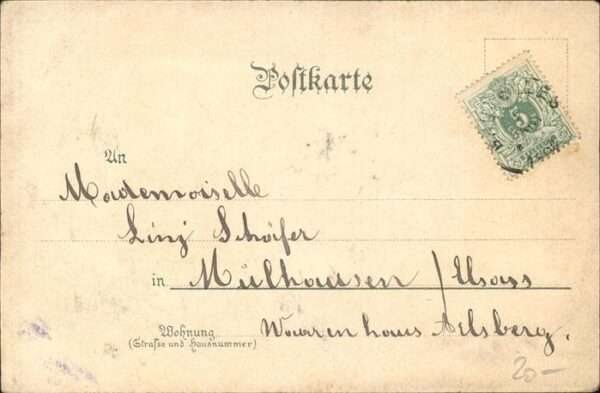 Postkarte
5
An
Mademoiselle
Schäfer
in Mülhausen / Elsass
Wohnung Waarenhaus
(Strasse und Hausnummer)
20-